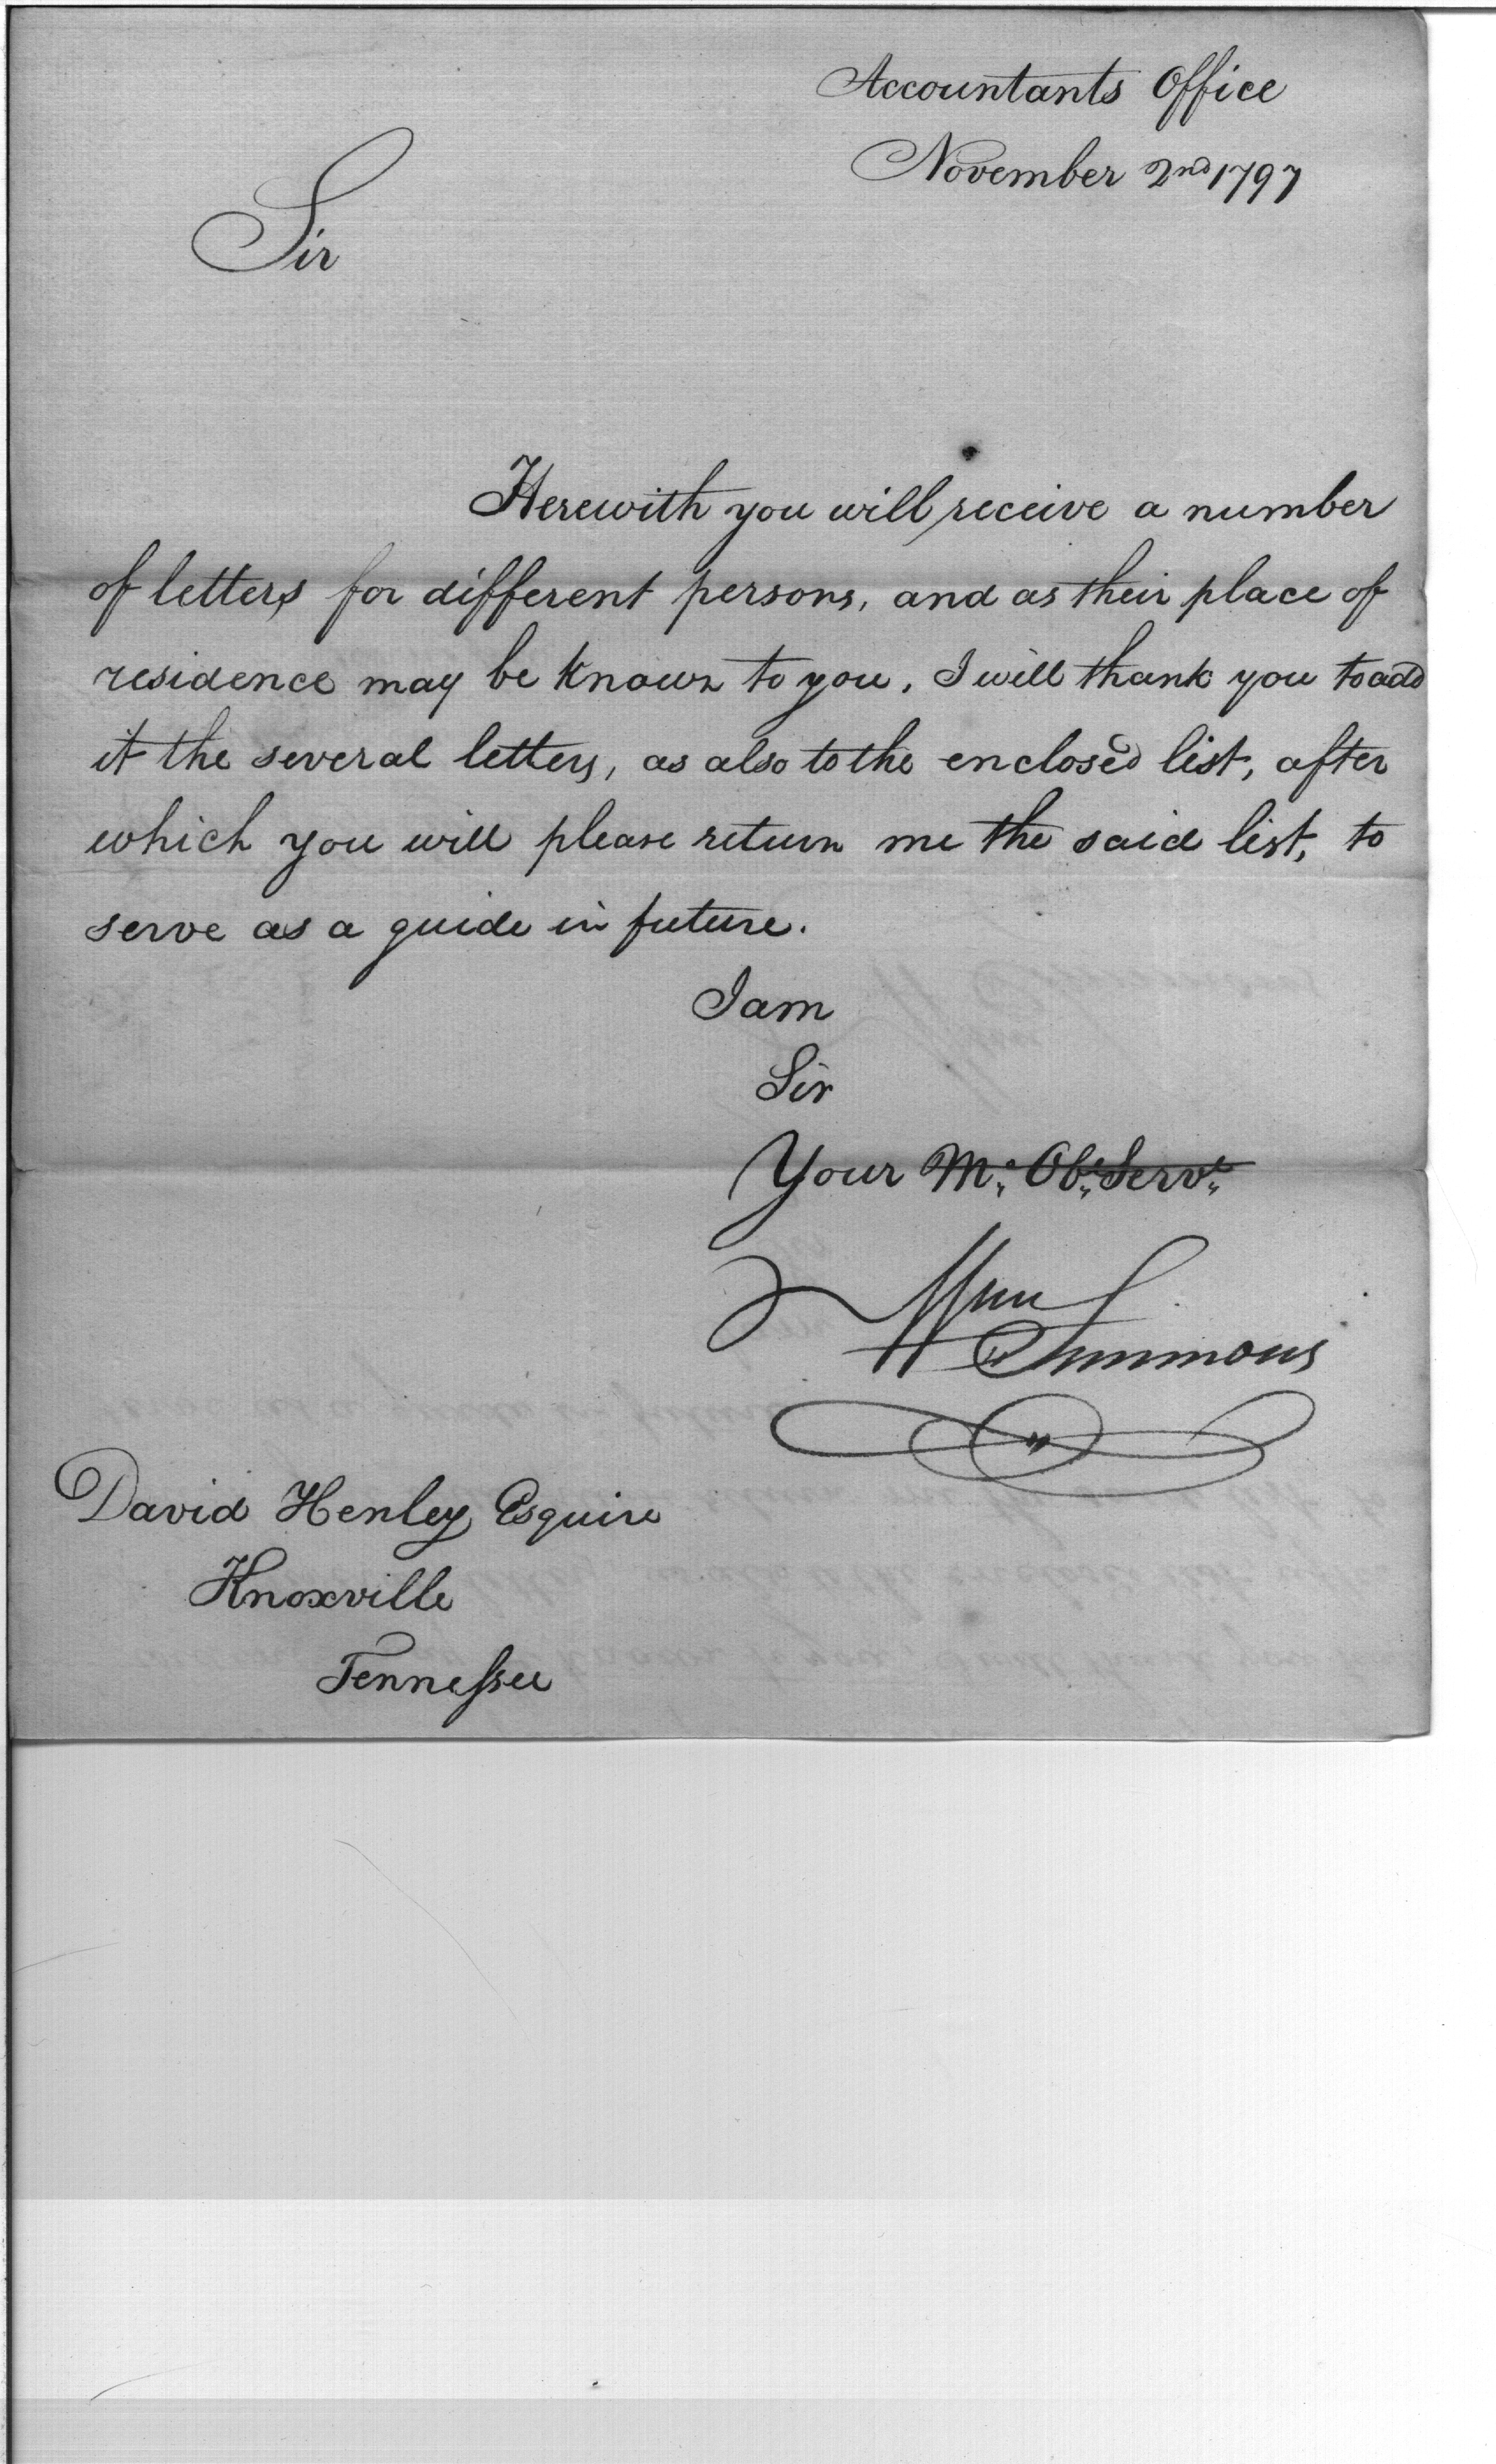 Accountants Office
November 2nd 1797
Sir
Herewith you will receive a number
of letters for different persons, and as their place of
residence may be known to you, I will thank you to add
it the several letters, as also to the enclosed list, after
which you will please return me the said list, to
serve as a guide in future.
I am
Sir
Your Mo. Obt. Servt.
Wm Simmons
David Henley Esquire
Knoxville
Tennessee